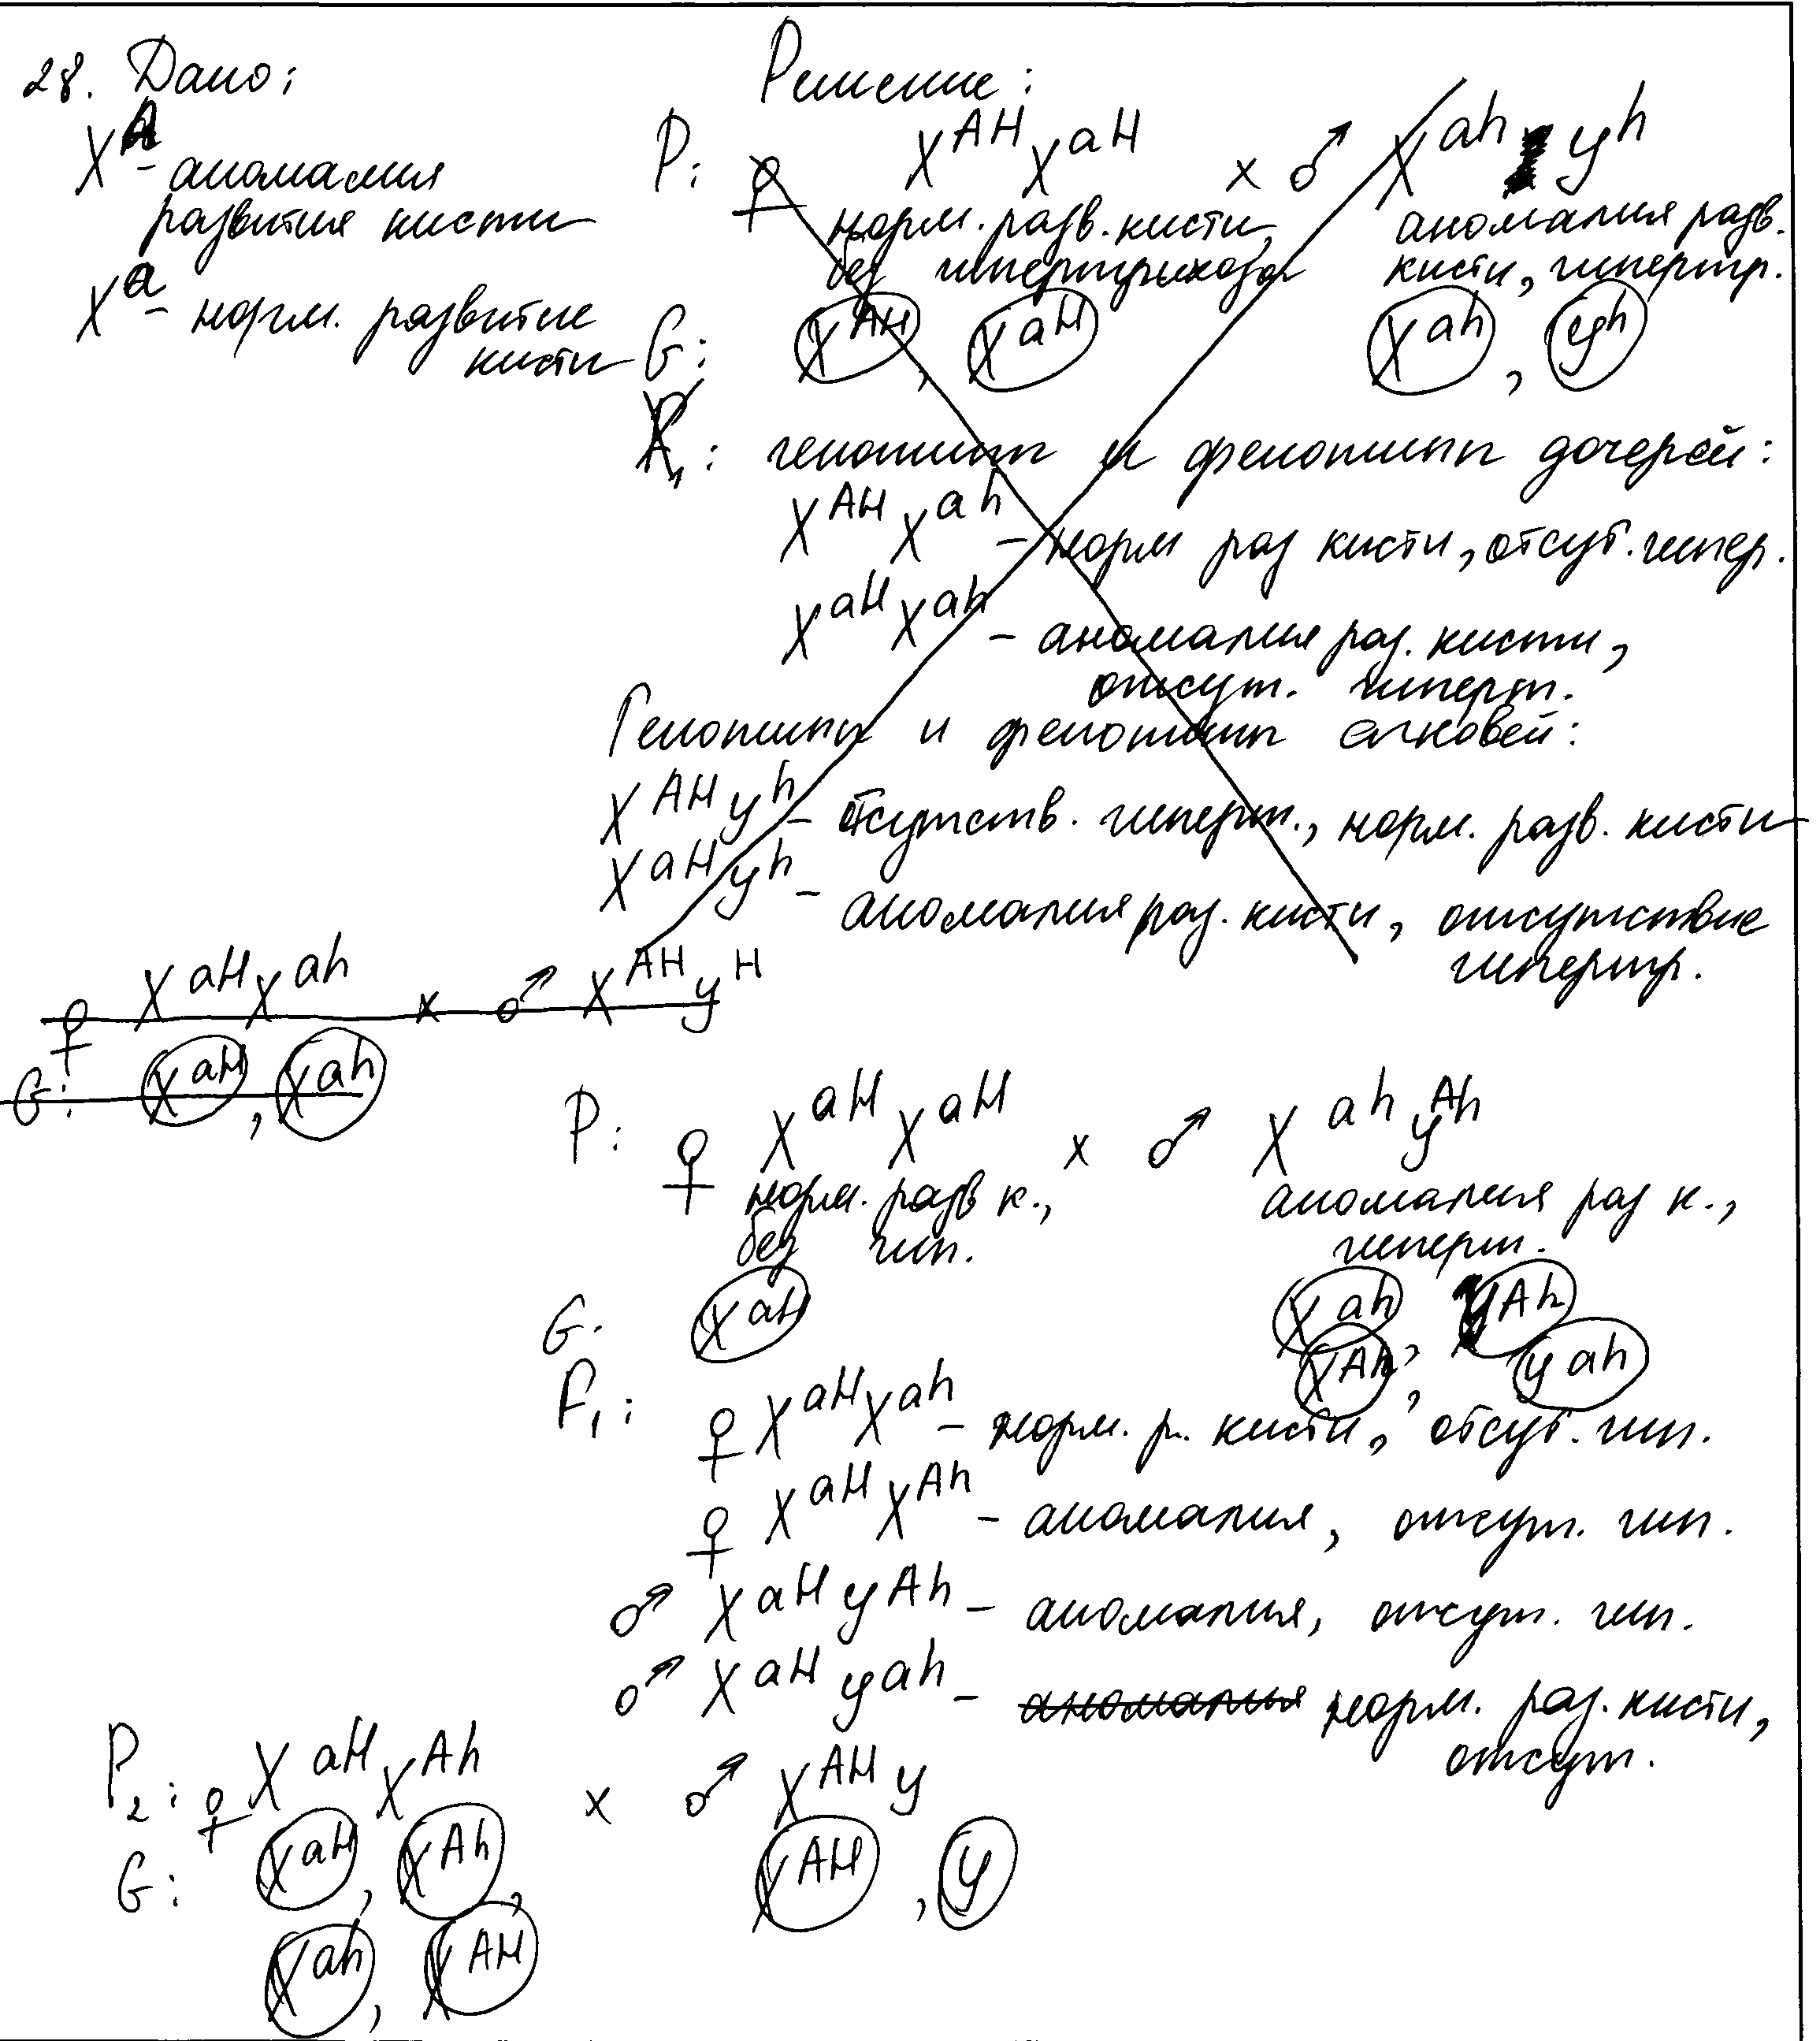 28. Дано:
X^A - аномалия
развития кисти
X^a - норм. развитие
кисти
Решение:
P: ♀ X^AH X^aH x ♂ X^ah y^h
норм. разв. кисти, аномалия разв.
без гипертрихоза кисти, гипертр.
G: X^AH, X^aH X^ah, y^h
F1: генотип и фенотип дочерей:
X^AH X^ah - норм раз кисти, отсут. гипер.
X^aH X^ah - аномалия раз. кисти,
отсут. гиперт.
Генотипы и фенотип сыновей:
X^AH y^h - отсутств. гиперт., норм. разв. кисти
X^aH y^h - аномалия раз. кисти, отсутствие
гипертр.
♀ X^aH X^ah x ♂ X^AH y^H
G: X^aH, X^ah
P: ♀ X^aH X^aH x ♂ X^ah y^Ah
норм. разв к., аномалия раз к.,
без гип. гиперт.
G: X^aH X^ah, y^Ah
X^Ah, y^ah
F1: ♀ X^aH X^ah - норм. р. кисти, отсут. гип.
♀ X^aH X^Ah - аномалия, отсут. гип.
♂ X^aH y^Ah - аномалия, отсут. гип.
♂ X^aH y^ah - аномалия норм. раз. кисти,
отсут.
P2: ♀ X^aH X^Ah x ♂ X^AH y
G: X^aH, X^Ah, X^AH, y
X^ah, X^AH